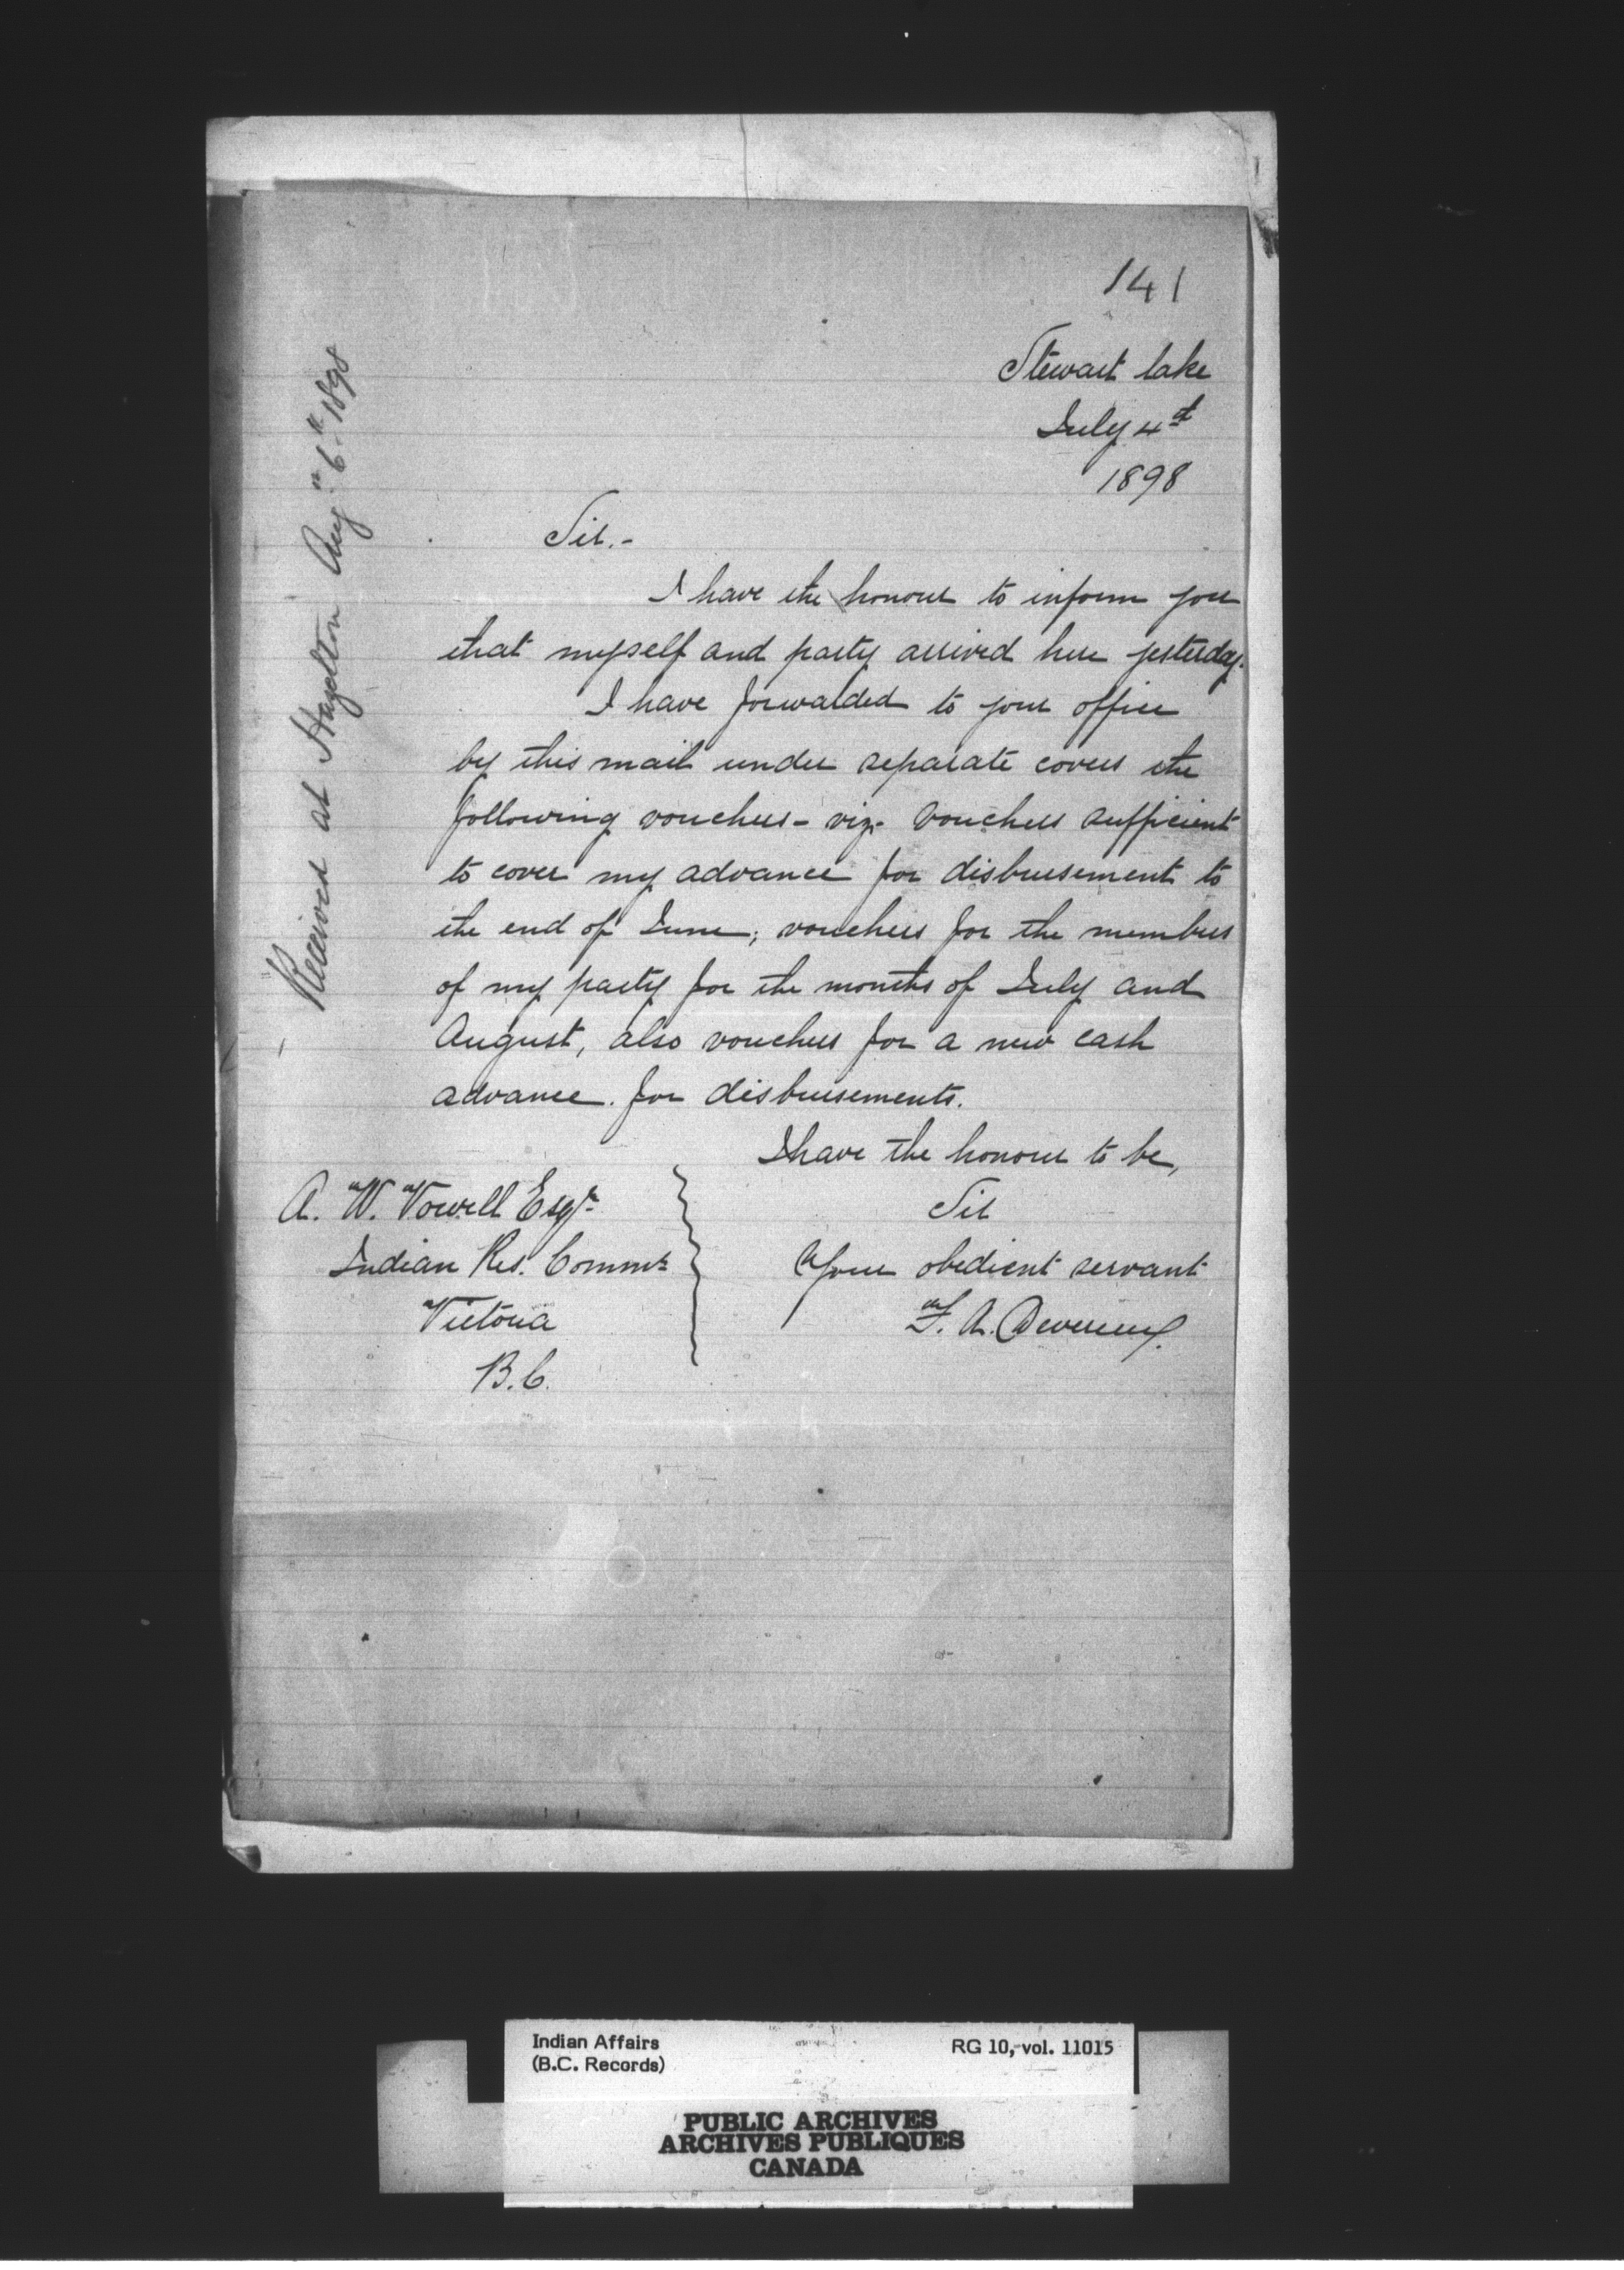 141
Stewart lake
July 4th
1898
Sir.-
I have the honour to inform you
that myself and party arrived here yesterday.
I have forwarded to your office
by this mail under separate covers the
following vouchers - viz - vouchers sufficient
to cover my advance for disbursement to
the end of June; vouchers for the members
of my party for the months of July and
August, also vouchers for a new cash
advance. for disbursements.
I have the honour to be,
Sir
Your obedient servant
F. A. Devereux.
A. W. Vowell Esqr
Indian Res. Commr
Victoria
B.C.
Received at Hazelton Aug 6th 1898
Indian Affairs
(B.C. Records)
RG 10, vol. 11015
PUBLIC ARCHIVES
ARCHIVES PUBLIQUES
CANADA